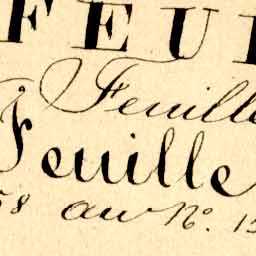 FEUI
Feuille
Feuille
58 au N°. 15